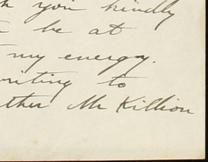 you kindly
be at
my energy.
writing to
ther Mr Killion